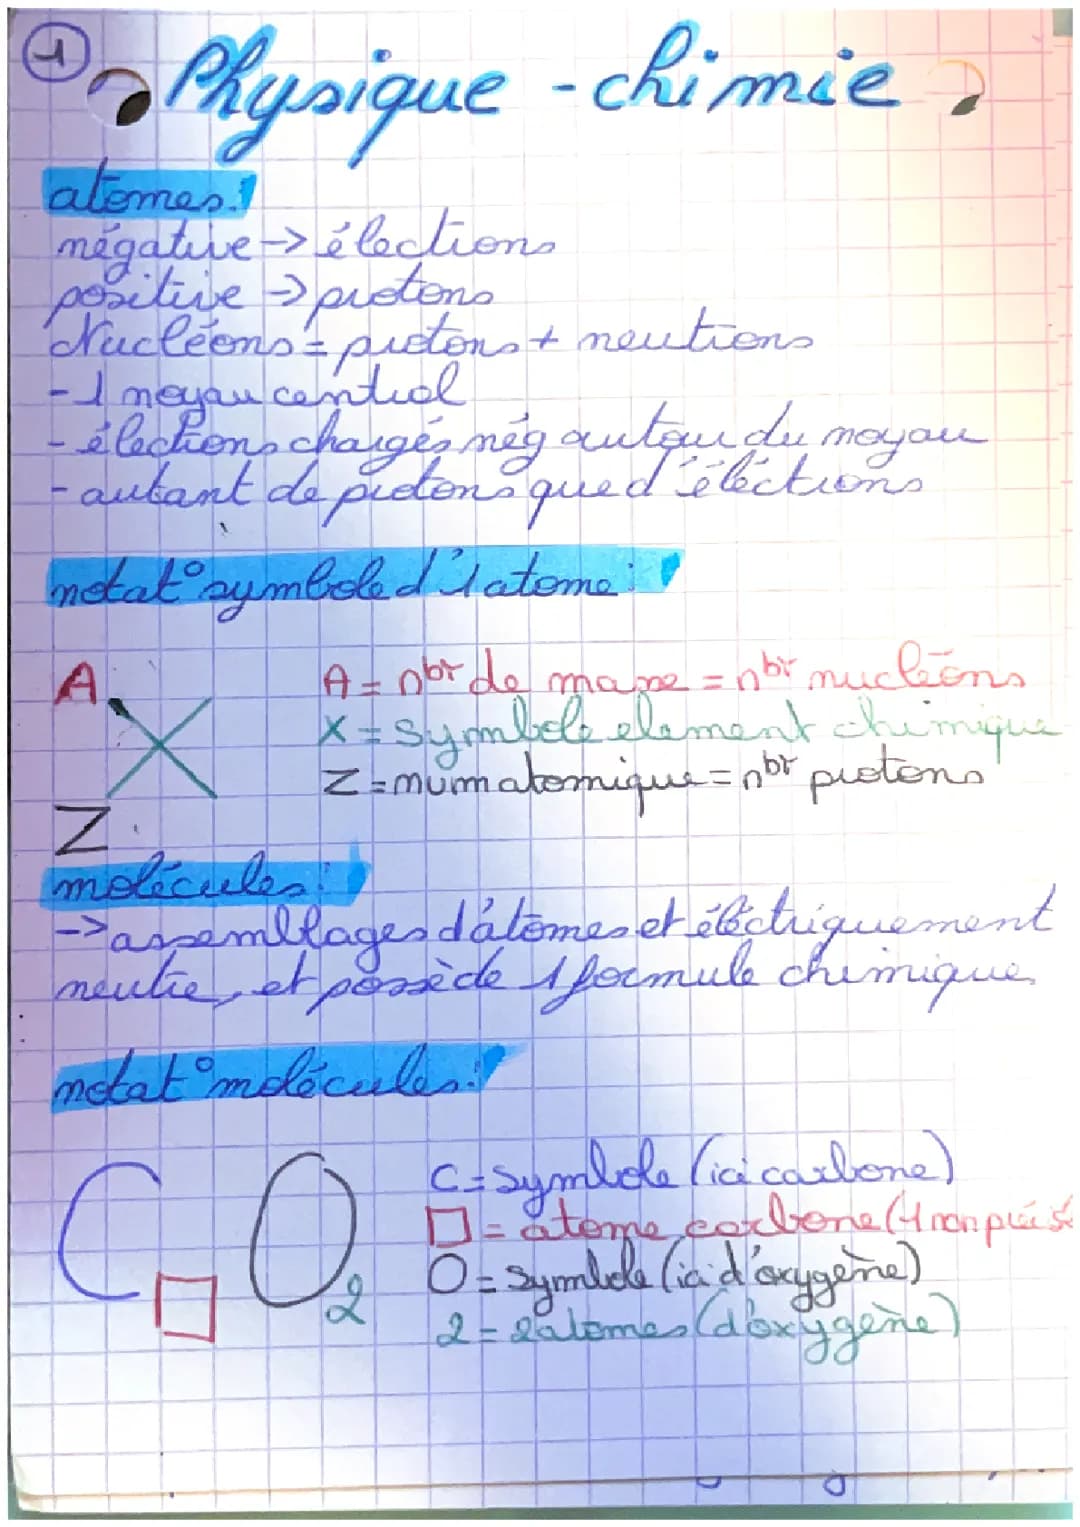 1
Physique-chimie
atomes:
négative -> électrons
positive -> protons
Nucléons = protons + neutrons
- 1 noyau central
- électrons chargés nég autour du noyau
- autant de protons que d'éléctrons
notat° symbole d'1 atome:
A
A = nbr de masse = nbr nucléons
X
X = symbole element chimique
Z = num atomique = nbr protons
Z
molécules:
-> assemblages d'atomes et éléctriquement
neutre, et possède 1 formule chimique
notat° molécules:
C O2
C = symbole (ici carbone)
□ = atome carbone (1 non précisé
O = symbole (ici d'oxygène)
2 = 2 atomes (d'oxygène)